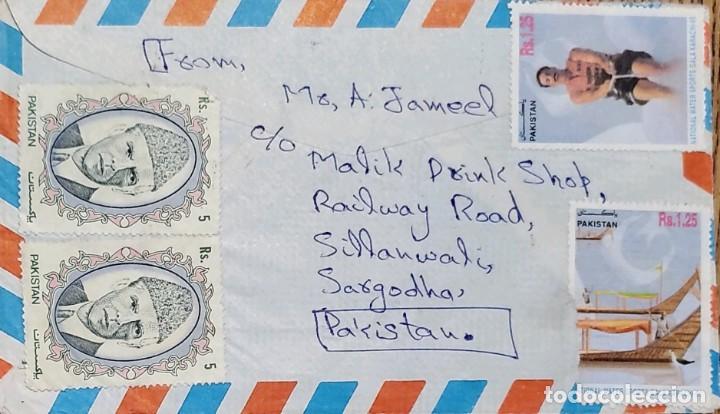 From,
Mr, A. Jameel
c/o
Malik Drink Shop,
Railway Road,
Sillanwali,
Sargodha,
Pakistan.
Rs. 5
PAKISTAN
پاکستان
Rs. 5
PAKISTAN
پاکستان
Rs.1.25
پاکستان
PAKISTAN
NATIONAL WATER SPORTS GALA KARACHI-95
پاکستان
PAKISTAN
Rs.1.25
NATIONAL WATER
todocoleccion